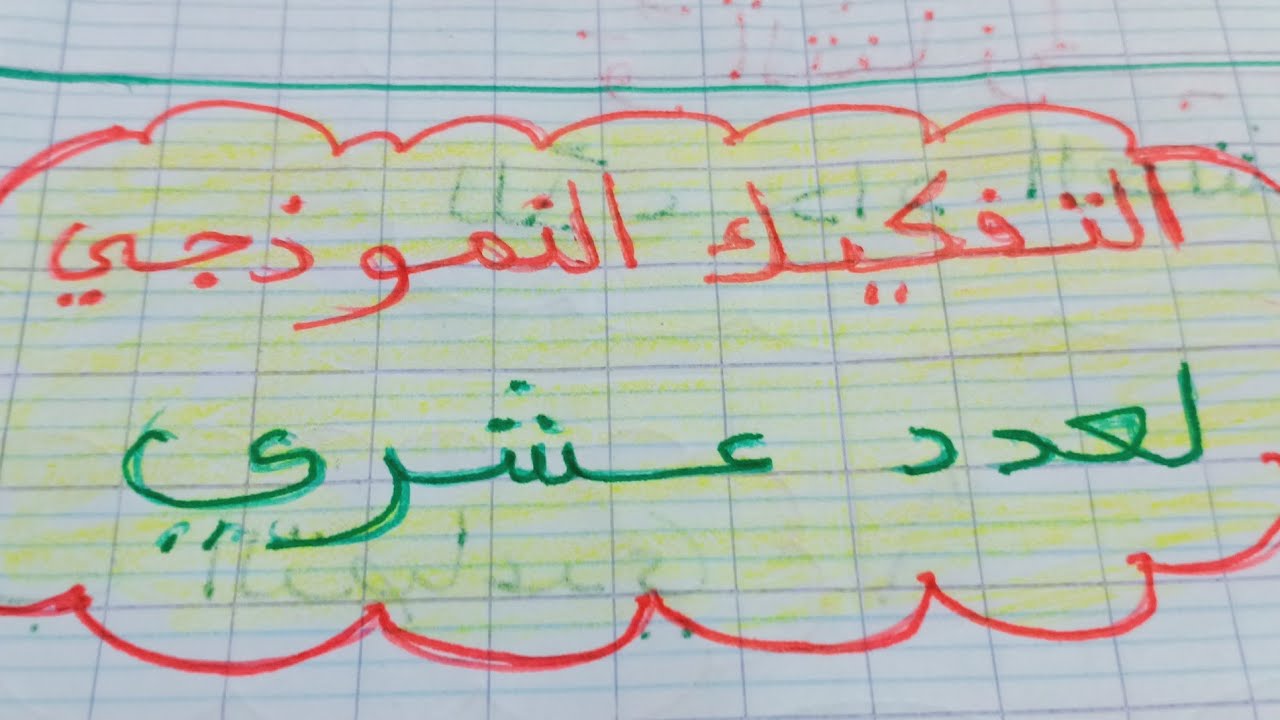 التفكيك النموذجي
لعدد عشري